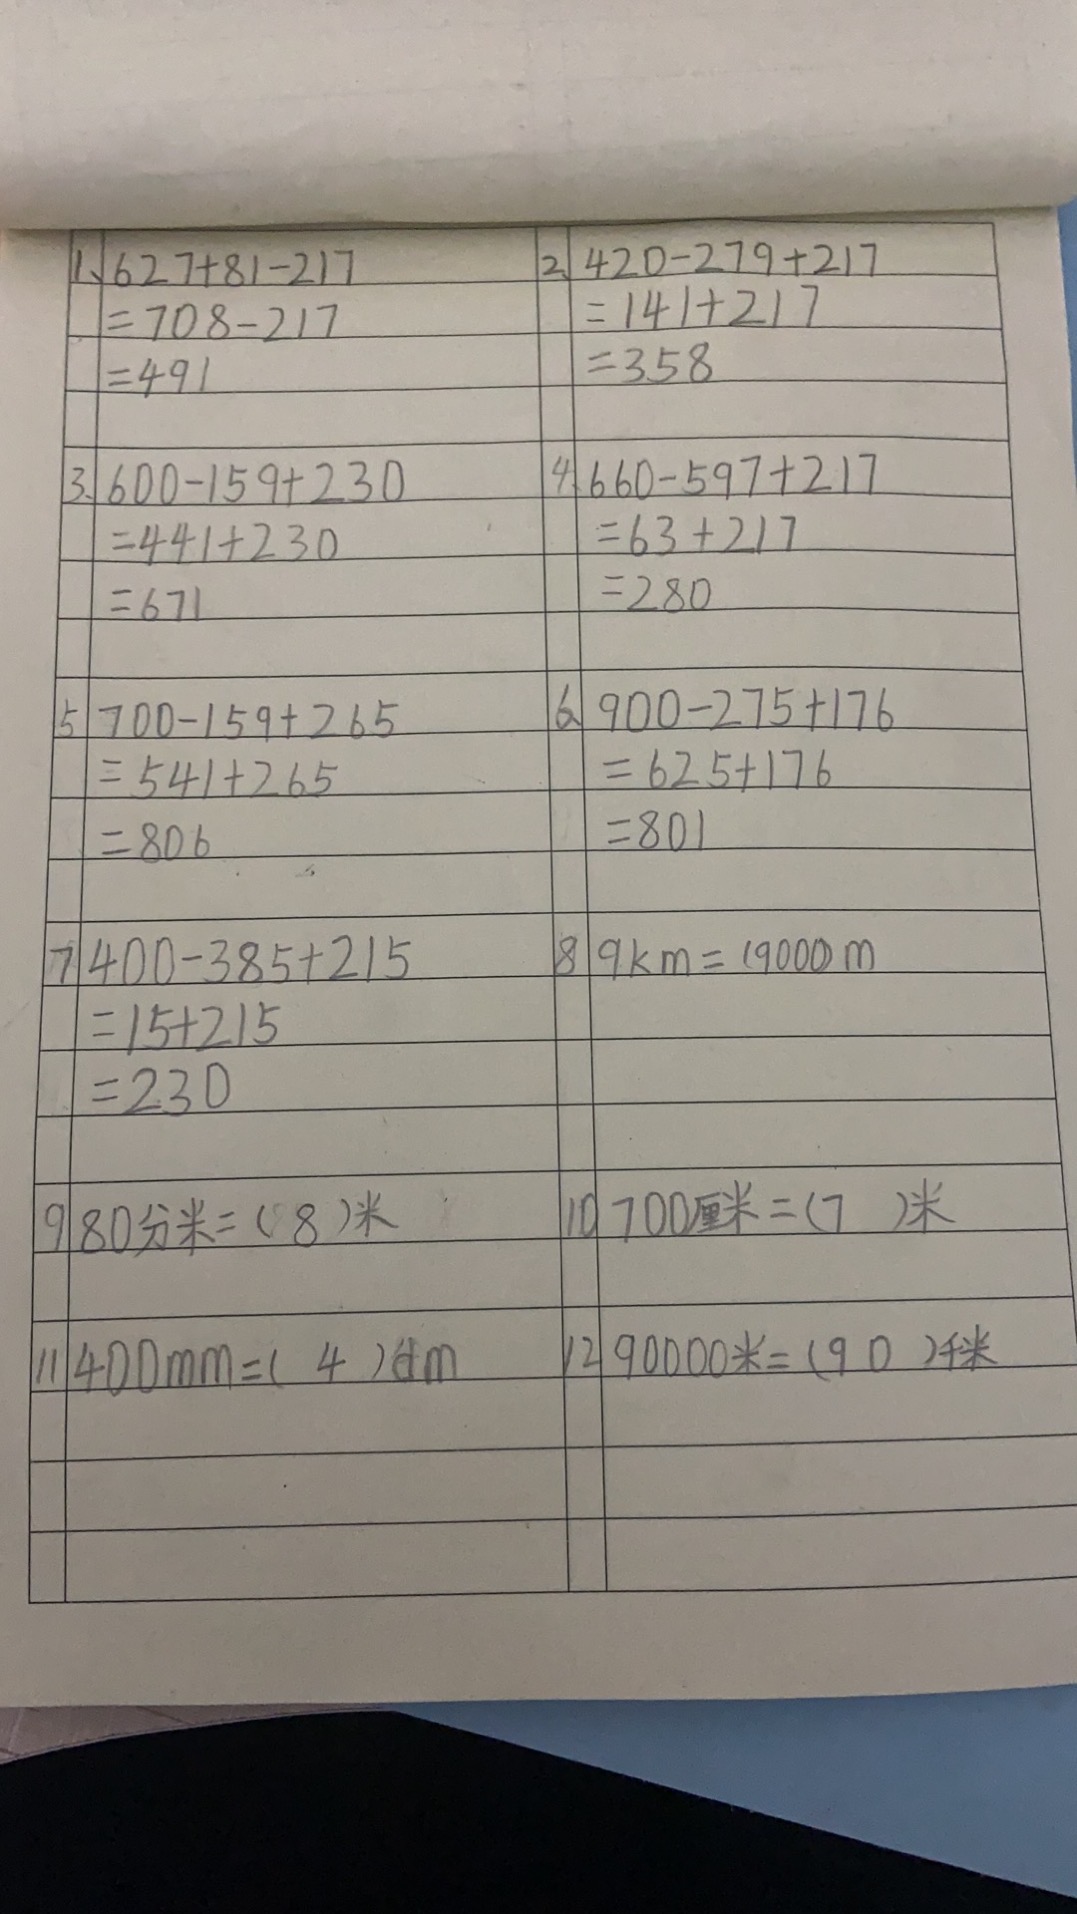 1、627+81-217
=708-217
=491
2、420-279+217
=141+217
=358
3、600-159+230
=441+230
=671
4、660-597+217
=63+217
=280
5 700-159+265
=541+265
=806
6、900-275+176
=625+176
=801
7 400-385+215
=15+215
=230
8 9km=(9000)m
9 80分米=(8)米
10 700厘米=(7)米
11 400mm=(4)dm
12 90000米=(90)千米